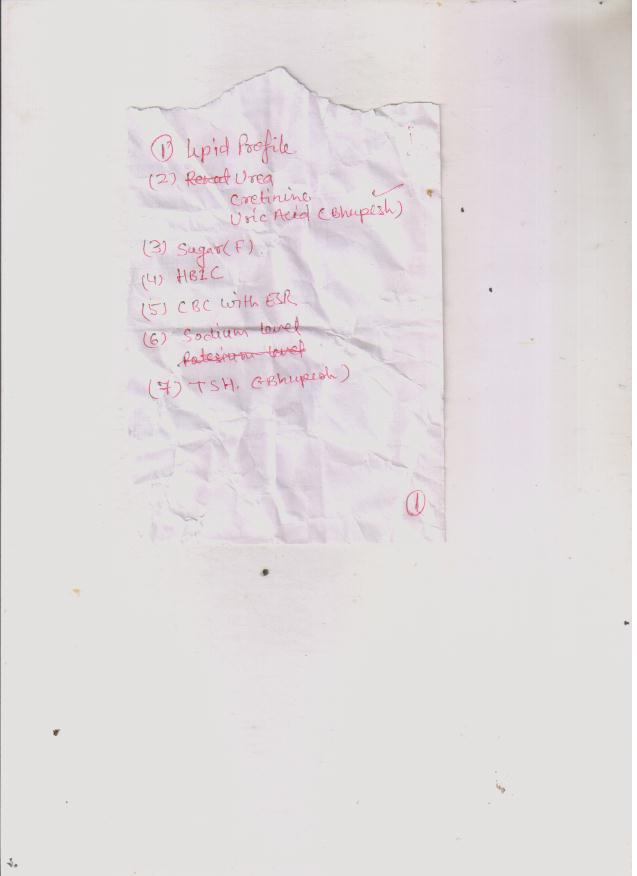 (1) Lipid Profile
(2) Renal Urea
Cretinine
Uric Acid (Bhupesh)
(3) Sugar (F)
(4) HB1C
(5) CBC with ESR
(6) Sodium level
Patesium level
(7) TSH. (Bhupesh)
(1)